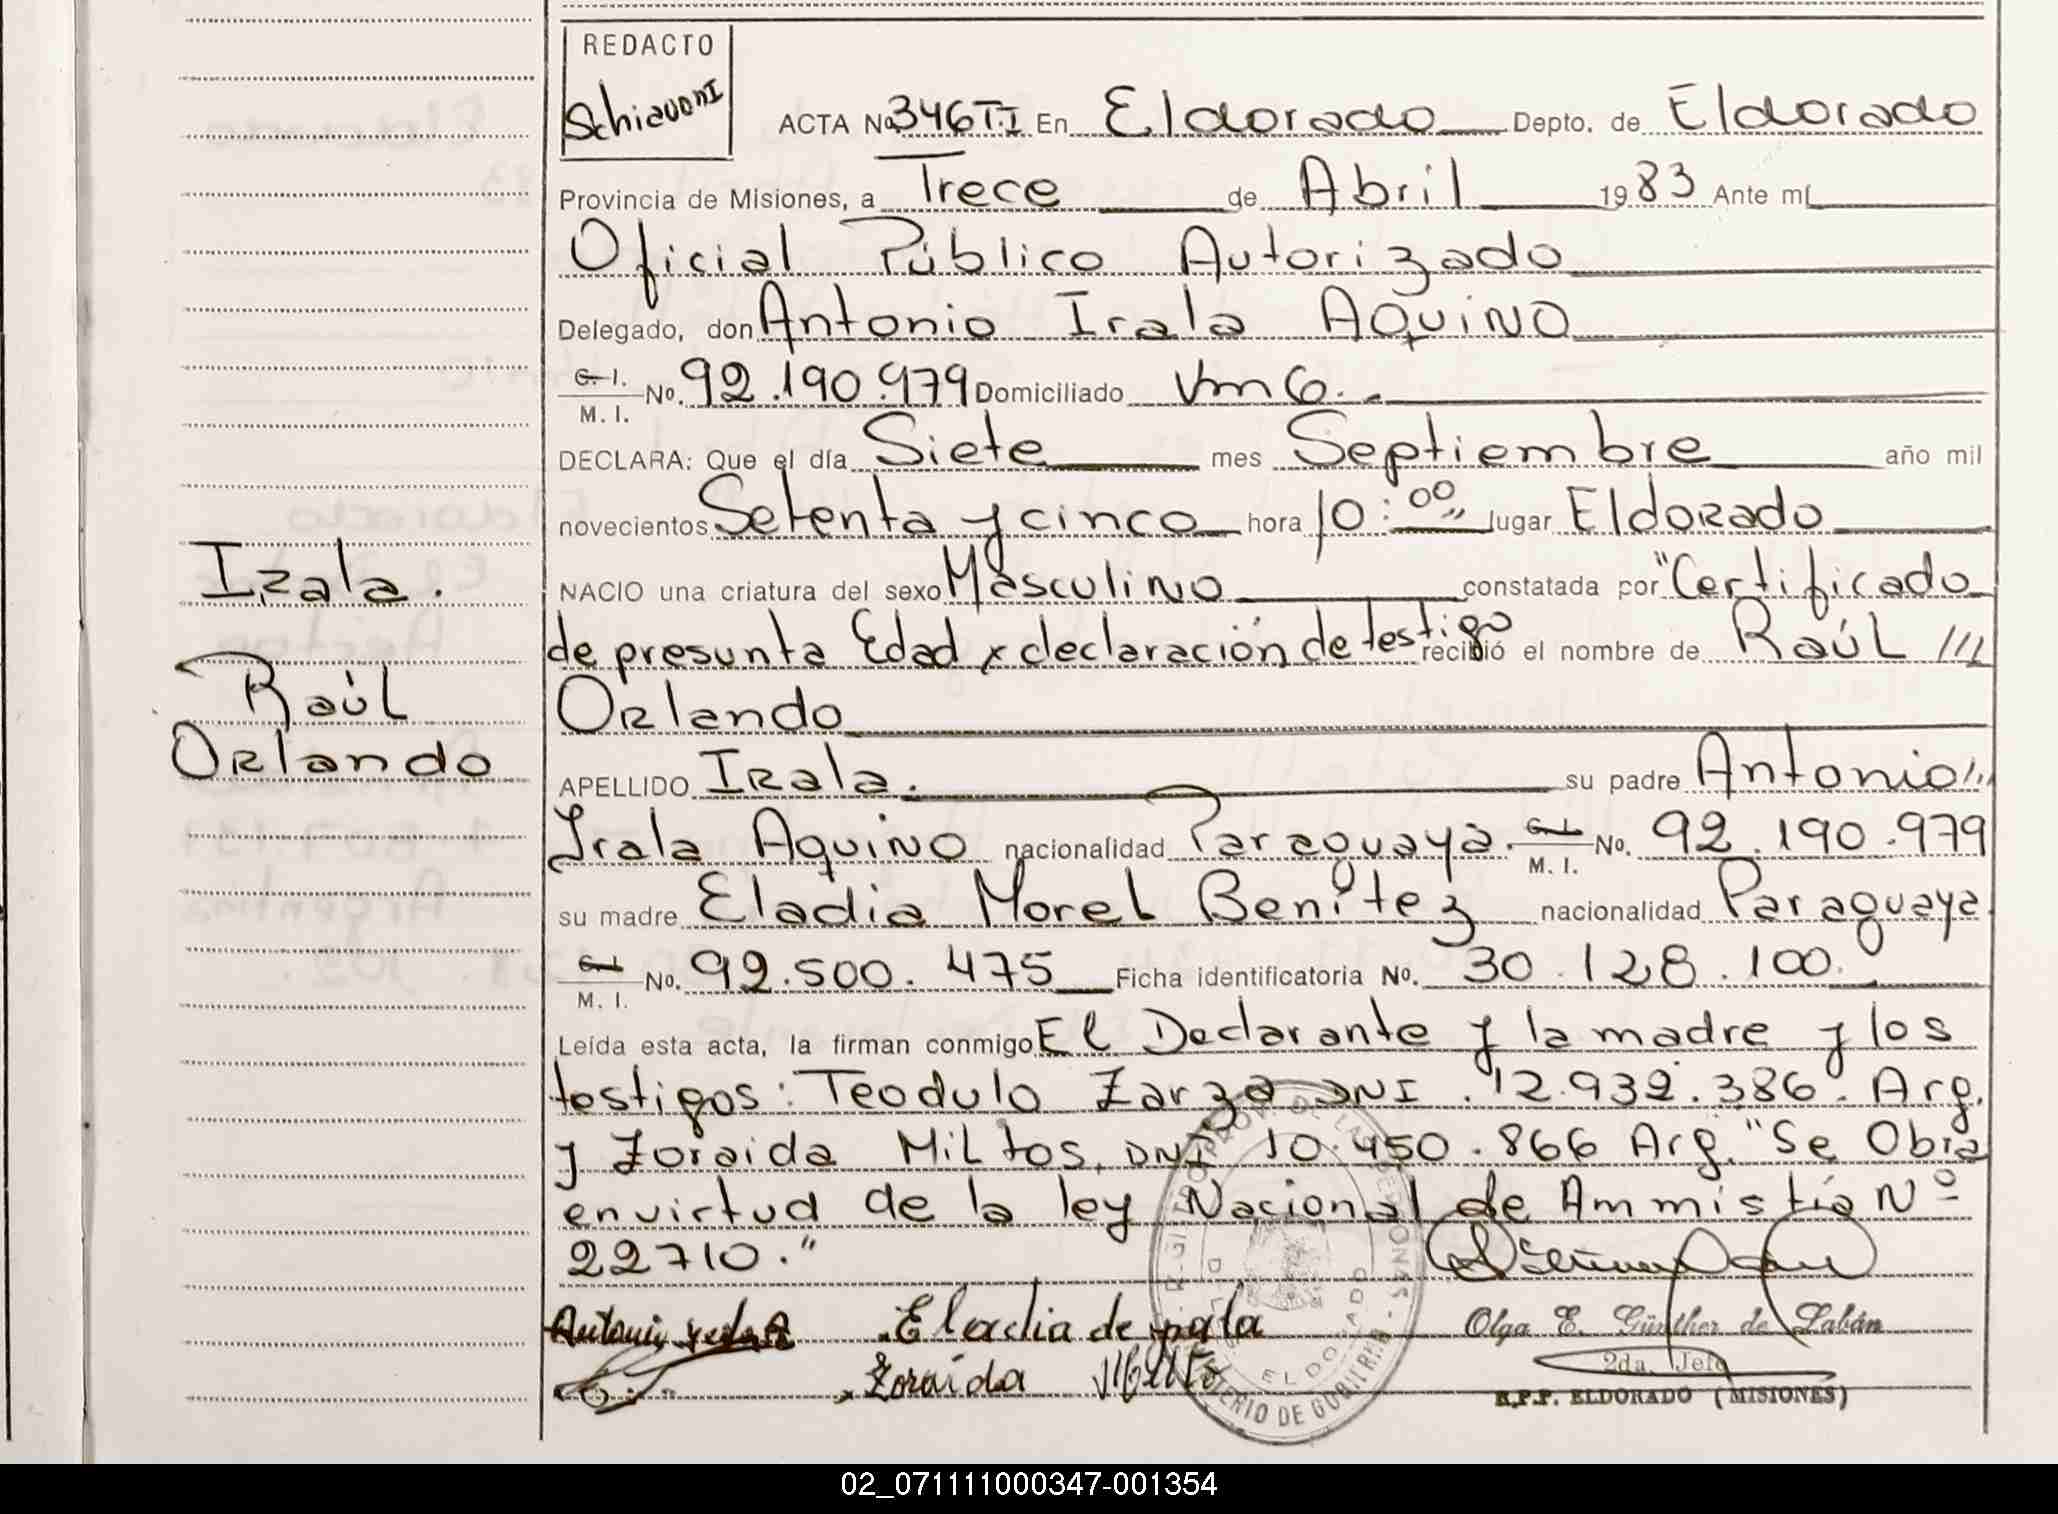 REDACTO
Schiavoni
ACTA No 346 T.I En Eldorado Depto. de Eldorado
Provincia de Misiones, a Trece de Abril 1983 Ante mí
Oficial Público Autorizado
Delegado, don Antonio Irala AQuiNO
C. I. M. I. No. 92.190.979 Domiciliado
DECLARA: Que el día Siete mes Septiembre año mil
novecientos Setenta y cinco hora 10:00 lugar Eldorado
NACIO una criatura del sexo Masculino constatada por "Certificado
de presunta Edad x declaración de testigo recibió el nombre de Raúl ///
Orlando
APELLIDO Irala. su padre Antonio///
Irala Aquino nacionalidad Paraguaya. C. I. M. I. No. 92.190.979
su madre Eladia Morel Benítez nacionalidad Paraguaya
C. I. M. I. No. 92.500.475 Ficha identificatoria No. 30.128.100.
Leída esta acta, la firman conmigo El Declarante y la madre y los
testigos: Teodulo Zarza DNI. 12.932.386. Arg.
y Zoraida Miltos. DNI 10.450.866 Arg. "Se Obra
en virtud de la ley Nacional de Ammistía Nº
22710."
Eladia de
Olga E. Günther de Labán
Zoraida
2da. Jefe
R.P.P. ELDORADO (MISIONES)
Irala.
Raúl
Orlando
ELDORADO
02_071111000347-001354